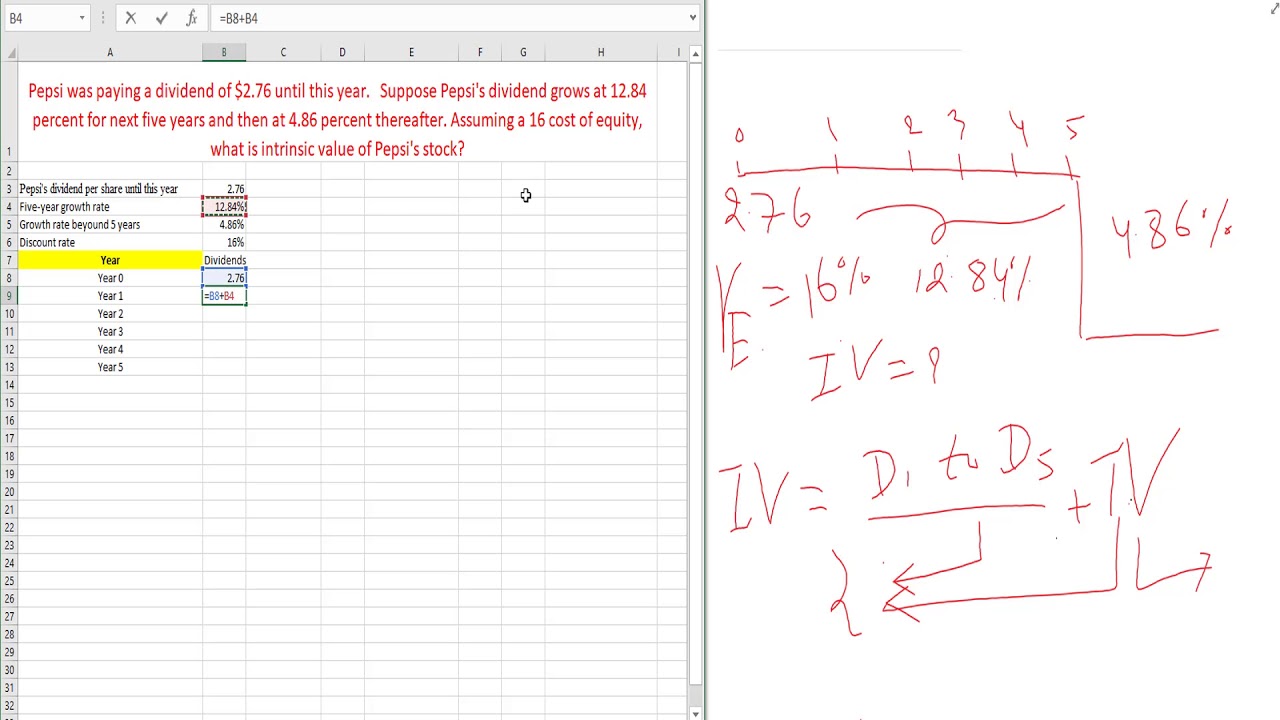 B4
fx
=B8+B4
A B C D E F G H I
1 Pepsi was paying a dividend of $2.76 until this year. Suppose Pepsi's dividend grows at 12.84
percent for next five years and then at 4.86 percent thereafter. Assuming a 16 cost of equity,
what is intrinsic value of Pepsi's stock?
2
3 Pepsi's dividend per share until this year 2.76
4 Five-year growth rate 12.84%
5 Growth rate beyound 5 years 4.86%
6 Discount rate 16%
7 Year Dividends
8 Year 0 2.76
9 Year 1 =B8+B4
10 Year 2
11 Year 3
12 Year 4
13 Year 5
14
15
16
17
18
19
20
21
22
23
24
25
26
27
28
29
30
31
32
0 1 2 3 4 5
2.76
4.86%
= 16% 12.84%
E
IV = ?
IV = D1 to D5 + TV